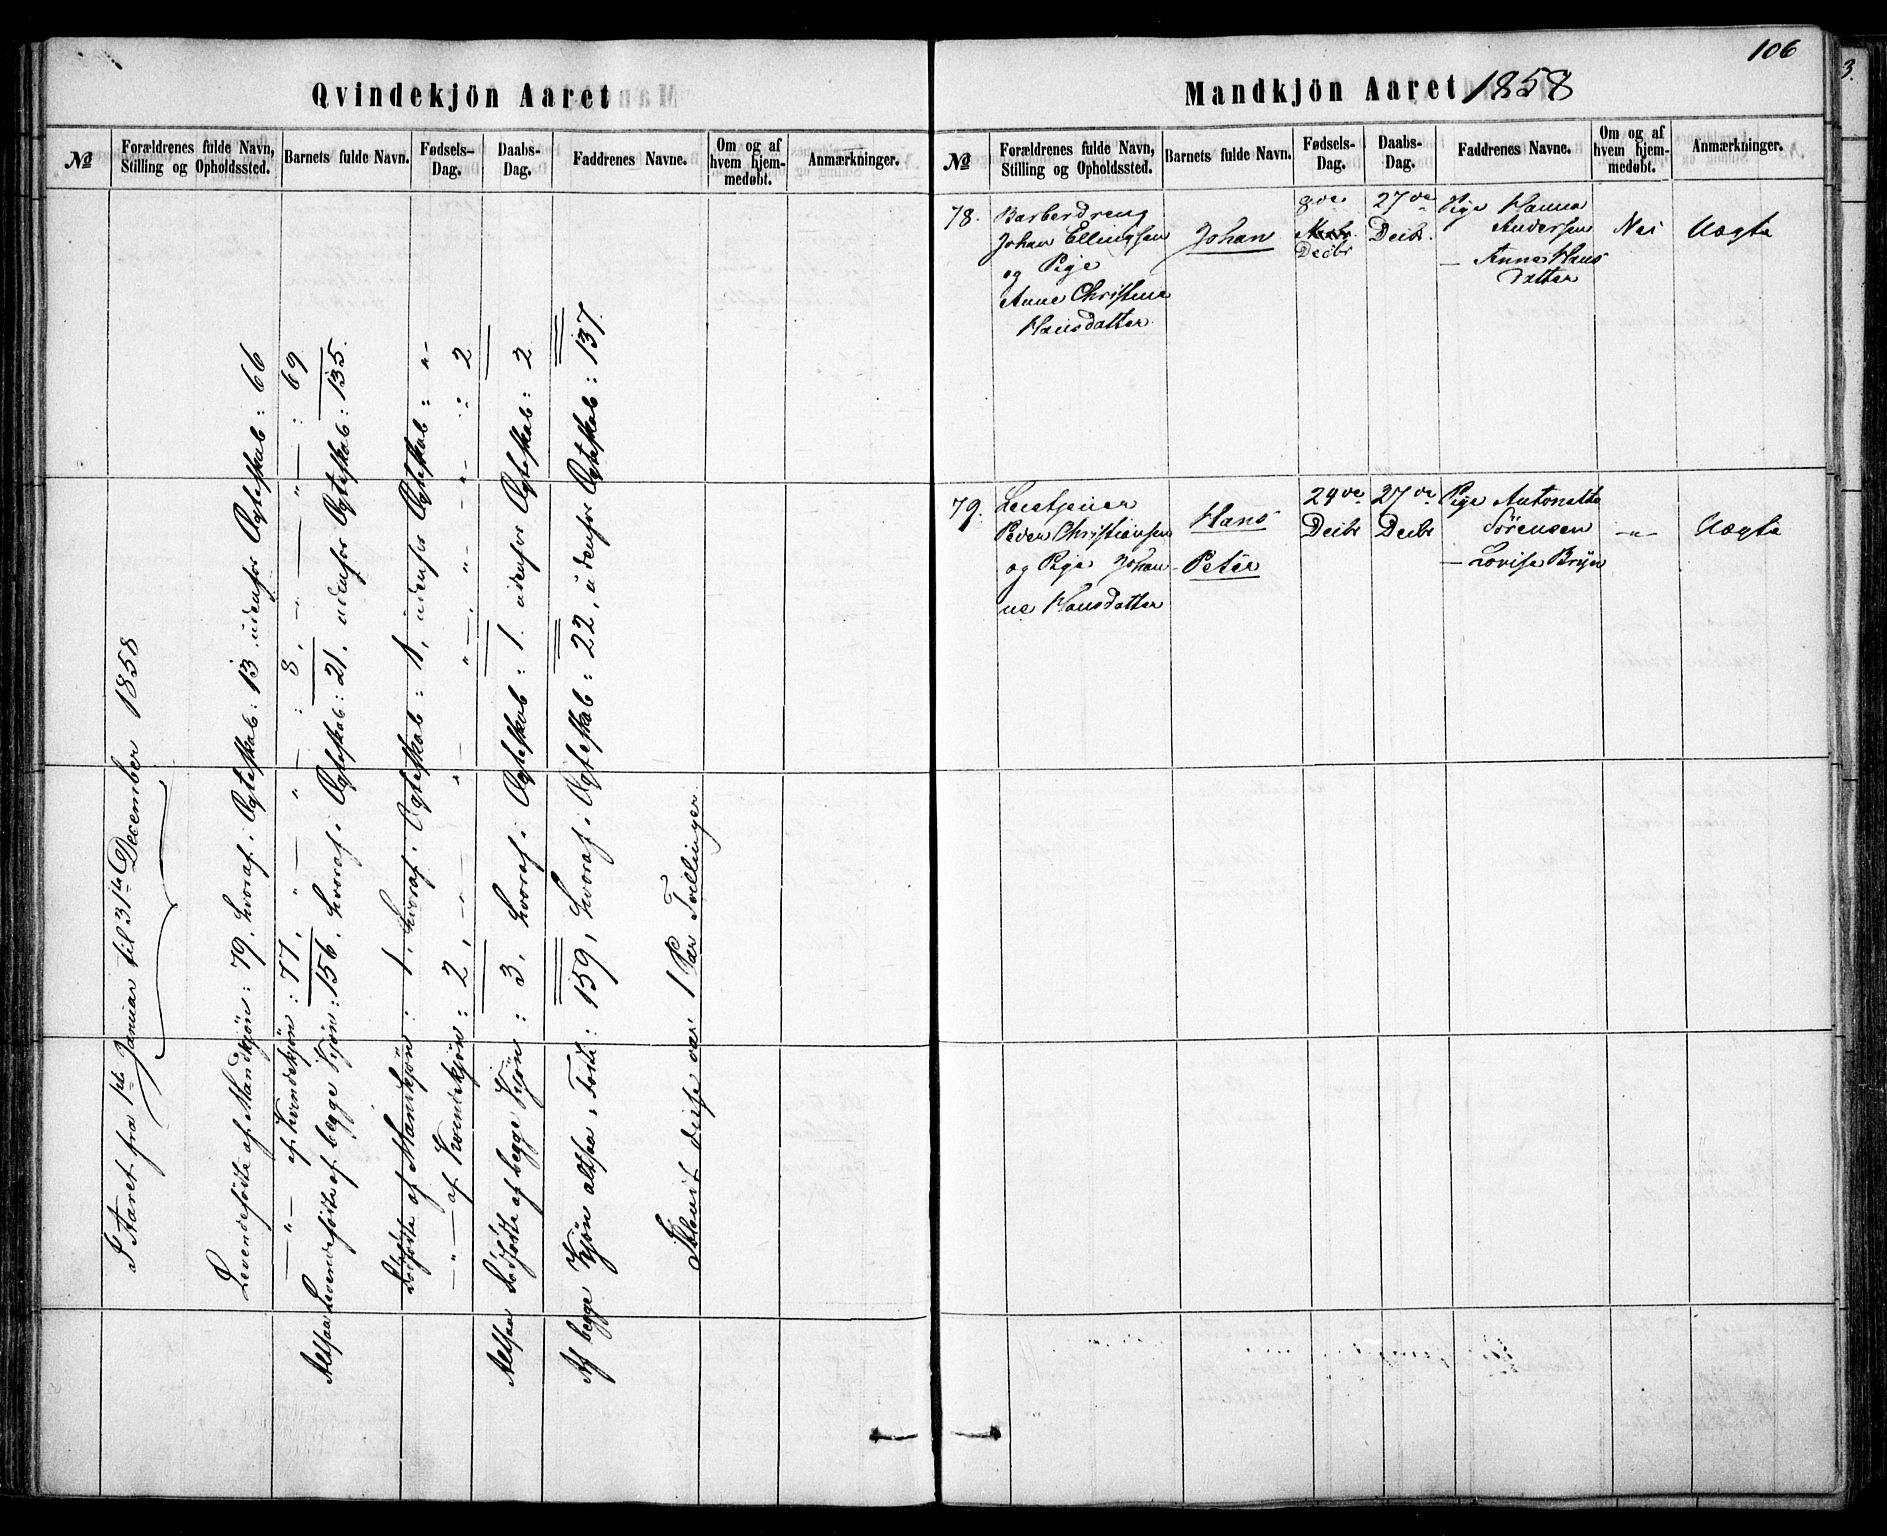 Qvindekjön Aaret
№
Forældrenes fulde Navn,
Stilling og Opholdssted.
Barnets fulde Navn.
Fødsels-
Dag.
Daabs-
Dag.
Faddrenes Navne.
Om og af
hvem hjem-
medøbt.
Anmærkninger.
I Aaret fra 1ste Januar til 31te December 1858
Levendefödte af Mandkjön: 79, hvoraf i Ægteskab: 13, udenfor Ægteskab: 66
— " — af Kvindekjön: 77, — " — " — : 8, — " — : 69
Altsaa Levendefödte af begge Kjön: 156, hvoraf i Ægteskab: 21, udenfor Ægteskab: 135.
Dödfödte af Mankjön: 1, hvoraf i Ægteskab: 1, udenfor Ægteskab: "
— " — af Kvindekjön: 2, — " — " — " — " — : 2
Altsaa Dödfödte af begge Kjön: 3, hvoraf i Ægteskab: 1, udenfor Ægteskab: 2
Af begge Kjön altsaa, Födte: 159, hvoraf i Ægteskab: 22, udenfor Ægteskab: 137.
Iblandt disse var 1 Par Tvillinger.
106
Mandkjön Aaret 1858
№
Forældrenes fulde Navn,
Stilling og Opholdssted.
Barnets fulde Navn.
Fødsels-
Dag.
Daabs-
Dag.
Faddrenes Navne.
Om og af
hvem hjem-
medøbt.
Anmærkninger.
78.
Barberdreng
Johan Ellingsen
og Pige
Anne Christine
Hansdatter
Johan
8de
Decbr
27de
Decbr.
Pige Hanna
Andersen
— Anne Hans
datter
Nei
Uægte
79.
Leietjener
Peder Christiansen
og Pige Johan
ne Hansdatter
Hans
Peter
24de
Decbr
27de
Decbr
Pige Antonette
Sörensen
— Lovise Bryn
— " —
Uægte
3.